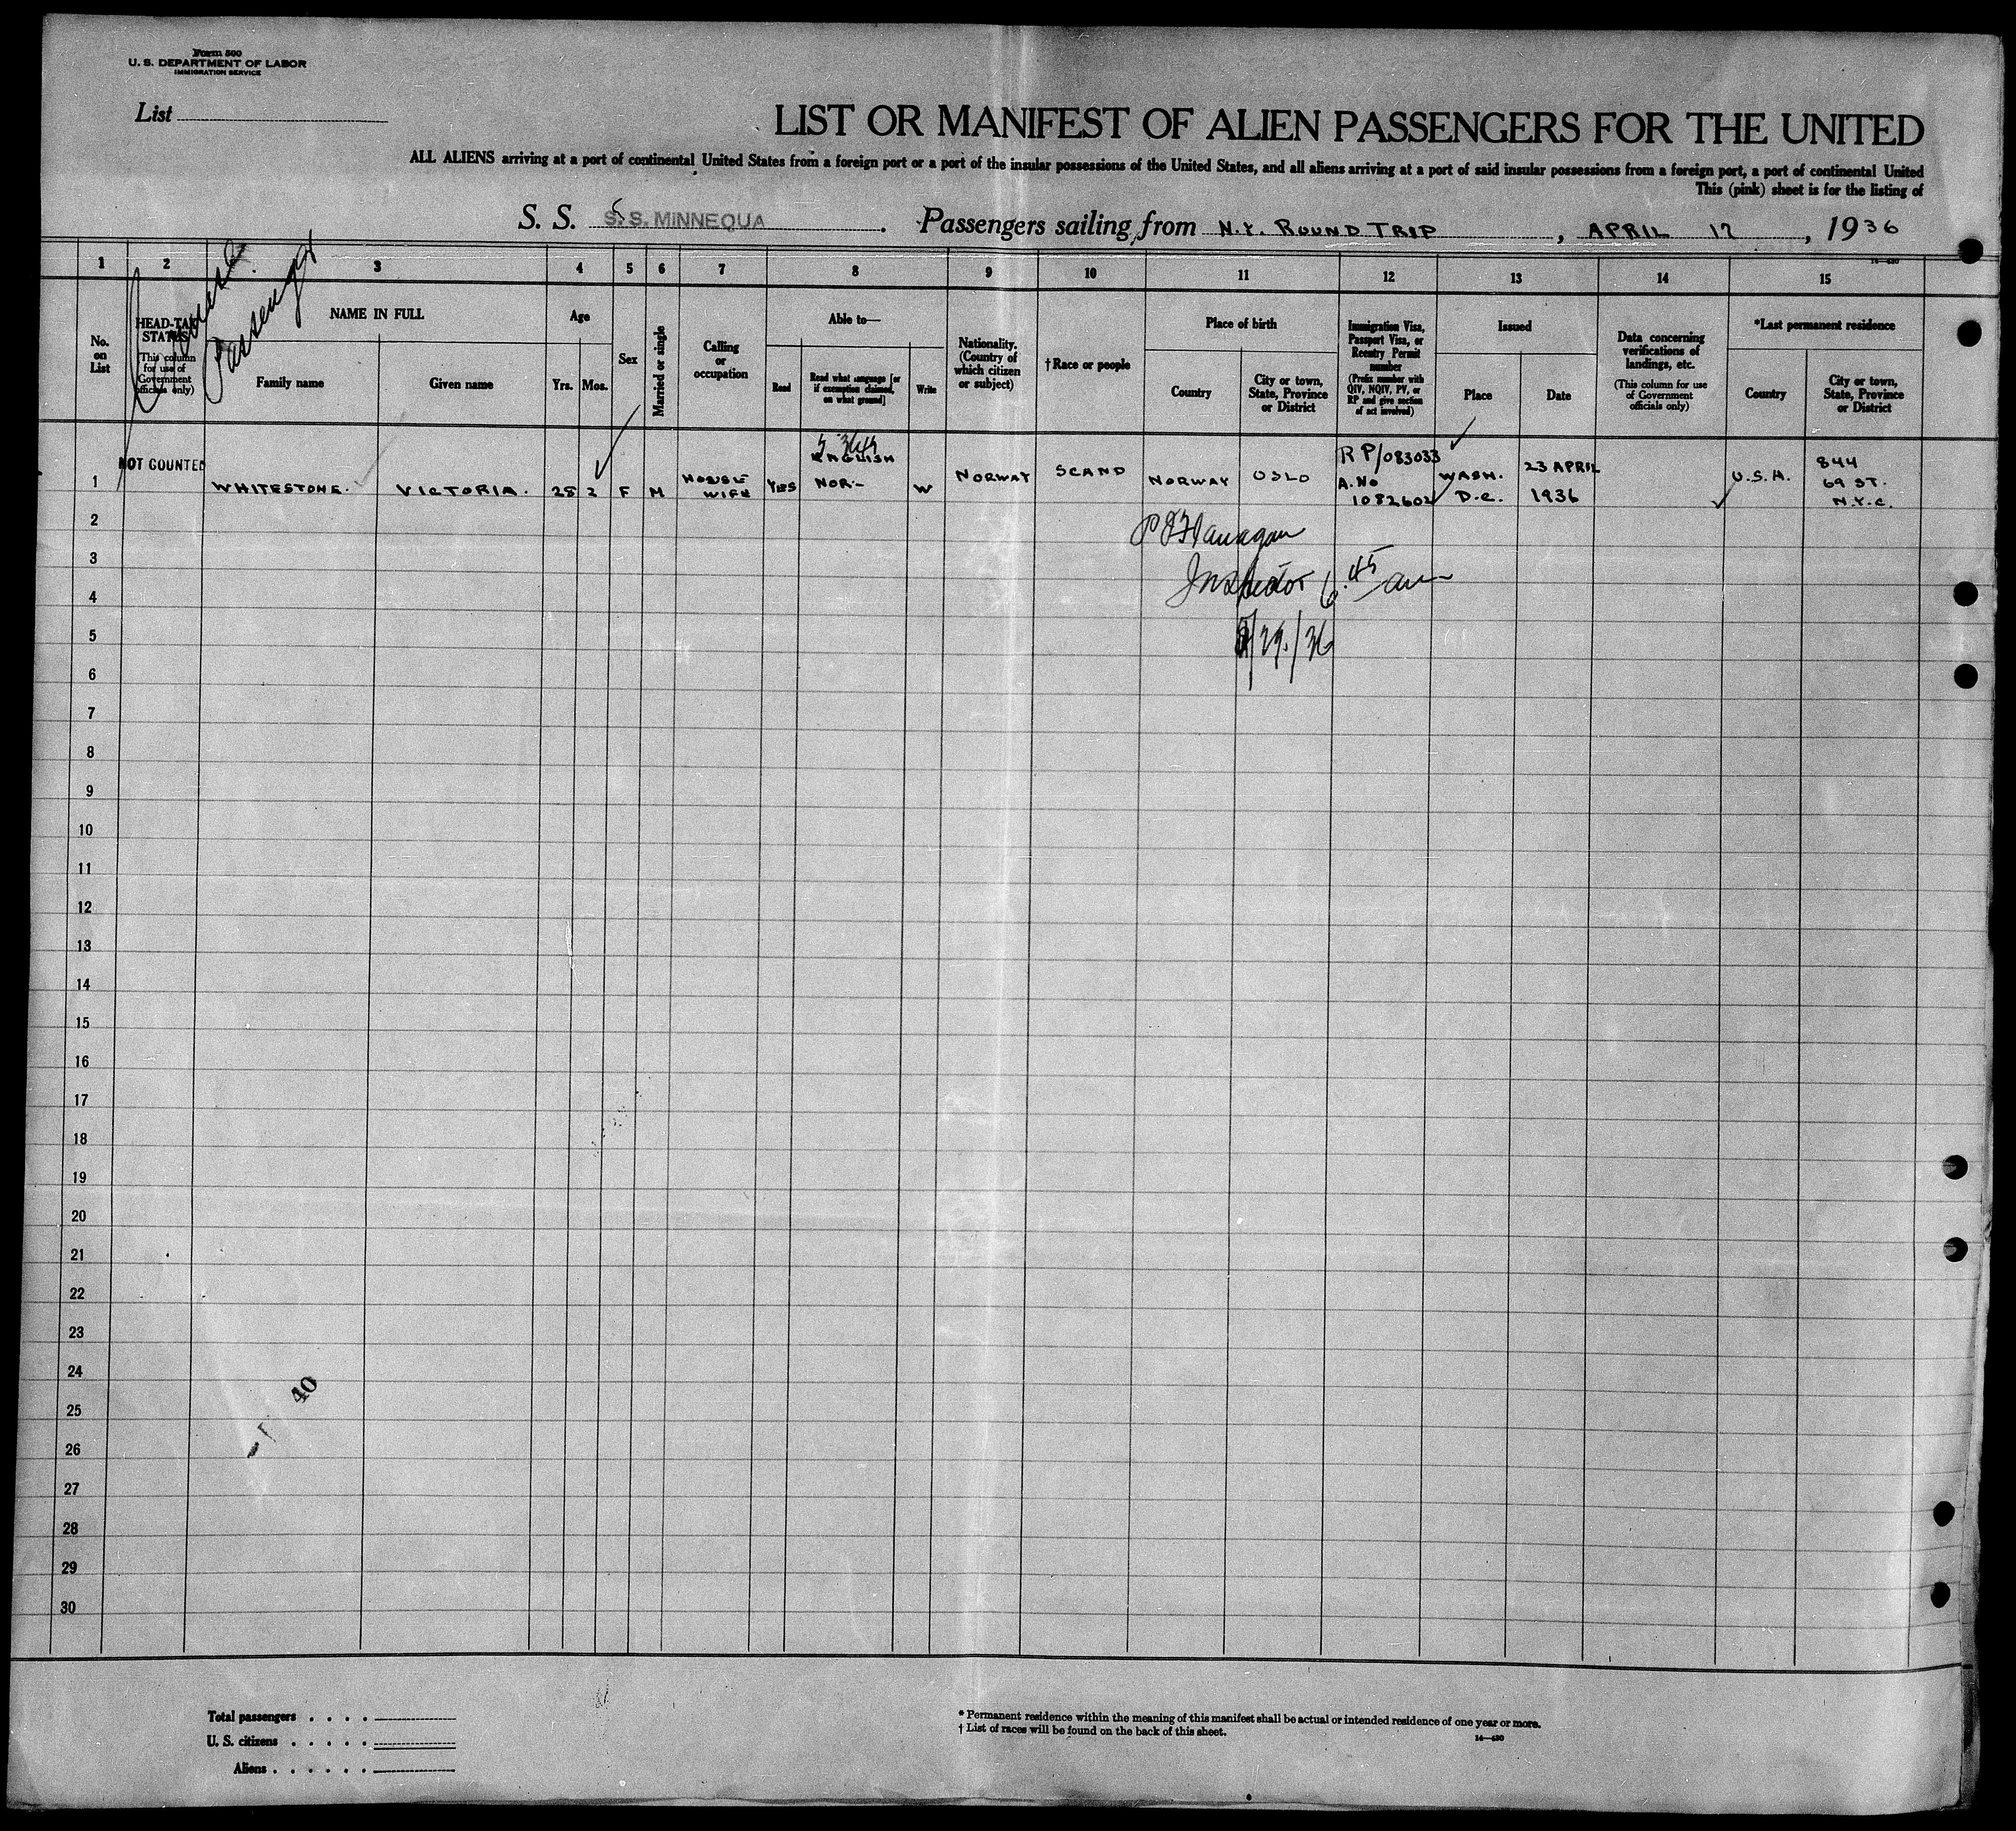 Form 500
U. S. DEPARTMENT OF LABOR
IMMIGRATION SERVICE
List
LIST OR MANIFEST OF ALIEN PASSENGERS FOR THE UNITED
ALL ALIENS arriving at a port of continental United States from a foreign port or a port of the insular possessions of the United States, and all aliens arriving at a port of said insular possessions from a foreign port, a port of continental United
This (pink) sheet is for the listing of
S. S. S.S. MINNEQUA. Passengers sailing from N.Y. ROUND TRIP, APRIL 17, 1936
14—430
1 2 3 4 5 6 7 8 9 10 11 12 13 14 15
Passenger
No. on List
HEAD-TAX STATUS
(This column for use of Government officials only)
NAME IN FULL
Family name
Given name
Age
Yrs.
Mos.
Sex
Married or single
Calling or occupation
Able to—
Read
Read what language [or if exemption claimed, on what ground]
Write
Nationality. (Country of which citizen or subject)
† Race or people
Place of birth
Country
City or town, State, Province or District
Immigration Visa, Passport Visa, or Reentry Permit number
(Prefix number with QIV, NQIV, PV, or RP and give section of act involved)
Issued
Place
Date
Data concerning verifications of landings, etc.
(This column for use of Government officials only)
*Last permanent residence
Country
City or town, State, Province or District
1
NOT COUNTED
WHITESTONE.
VICTORIA.
28
2
F
M
HOUSE
WIFE
YES
ENGLISH
NOR.-
W
NORWAY
SCAND
NORWAY
OSLO
R P/083033
A. No
1082602
WASH.
D.C.
23 APRIL
1936
U.S.A.
844
69 ST.
N.Y.C.
P J Flanagan
Inspector 6.45 am
/29/36
2
3
4
5
6
7
8
9
10
11
12
13
14
15
16
17
18
19
20
21
22
23
24
25
26
27
28
29
30
40
Total passengers . . . .
U. S. citizens . . . . .
Aliens . . . . . .
* Permanent residence within the meaning of this manifest shall be actual or intended residence of one year or more.
† List of races will be found on the back of this sheet.
14—430